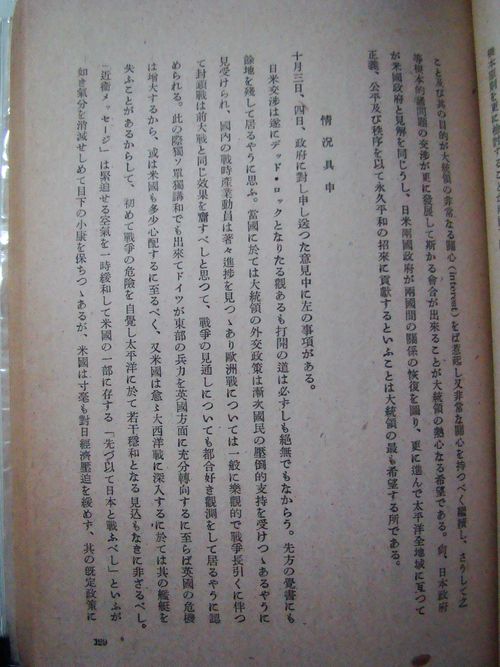 こと及び其の目的が大統領の非常なる關心(Interest)をば惹起し又非常なる關心を持つべく繼續し、さうして之
等根本的諸問題の交渉が更に發展して斯かる會合が出來ることが大統領の熱心なる希望である。尙、日本政府
が米國政府と見解を同じうし、日米兩國政府が兩國間の關係の恢復を圖り、更に進んで太平洋全地域に互つて
正義、公平及び秩序を以て永久平和の招來に貢獻するといふことは大統領の最も希望する所である。
情況具申
十月三日、四日、政府に對し申し送つた意見中に左の事項がある。
日米交渉は遂にデッド・ロックとなりたる觀あるも打開の道は必ずしも絕無でもなからう。先方の覺書にも
餘地を殘して居るやうに思ふ。當國に於ては大統領の外交政策は漸次國民の壓倒的支持を受けつゝあるやうに
見受けられ、國內の戰時產業動員は著々進捗を見つゝあり歐洲戰については一般に樂觀的で戰爭長引くに伴つ
て封頭戰は前大戰と同じ效果を齎すべしと思つて、戰爭の見通しについても都合好き觀測をして居るやうに認
められる。此の際獨ソ單獨講和でも出來てドイツが東部の兵力を英國方面に充分轉向するに至らば英國の危機
は增大するから、或は米國も多少心配するに至るべく、又米國は愈〻大西洋戰に深入するに於ては其の艦艇を
失ふことがあるからして、初めて戰爭の危險を自覺し太平洋に於て若干穩和となる見込もなきに非ざるべし。
「近衞メッセージ」は緊迫せる空氣を一時緩和して米國の一部に存する「先づ以て日本と戰ふべし」といふが
如き氣分を消滅せしめて目下の小康を保ちつゝあるが、米國は寸毫も對日經濟壓迫を緩めず、其の既定政策に
129